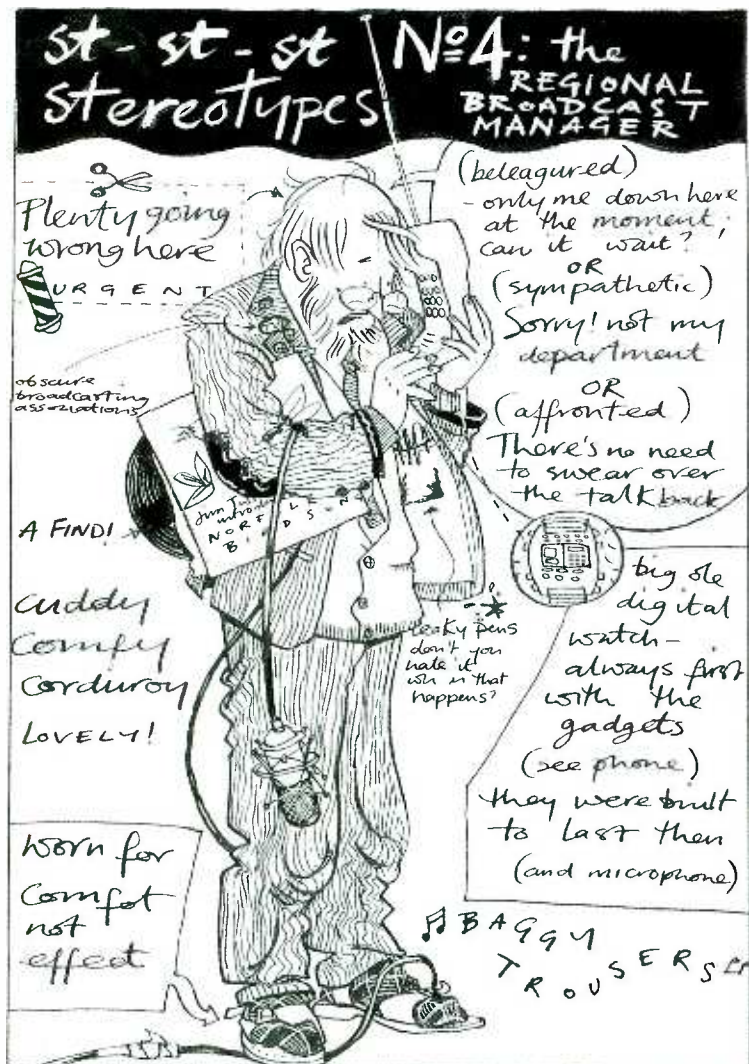 st - st - st
stereotypes
Nº4: the
REGIONAL
BROADCAST
MANAGER
Plenty going
wrong here
URGENT
(beleagured)
- only me down here
at the moment,
can it wait?
OR
(sympathetic)
Sorry! not my
department
OR
(affronted)
There's no need
to swear over
the talkback
obscure
broadcasting
associations
A FIND!
NORF
BIRDS
cuddy
comfy
corduroy
LOVELY!
leaky pens
don't you
hate it
when that
happens?
big ole
digital
watch -
always first
with the
gadgets
(see phone)
they were built
to last then
(and microphone)
worn for
comfot
not
effect
BAGGY
TROUSERS